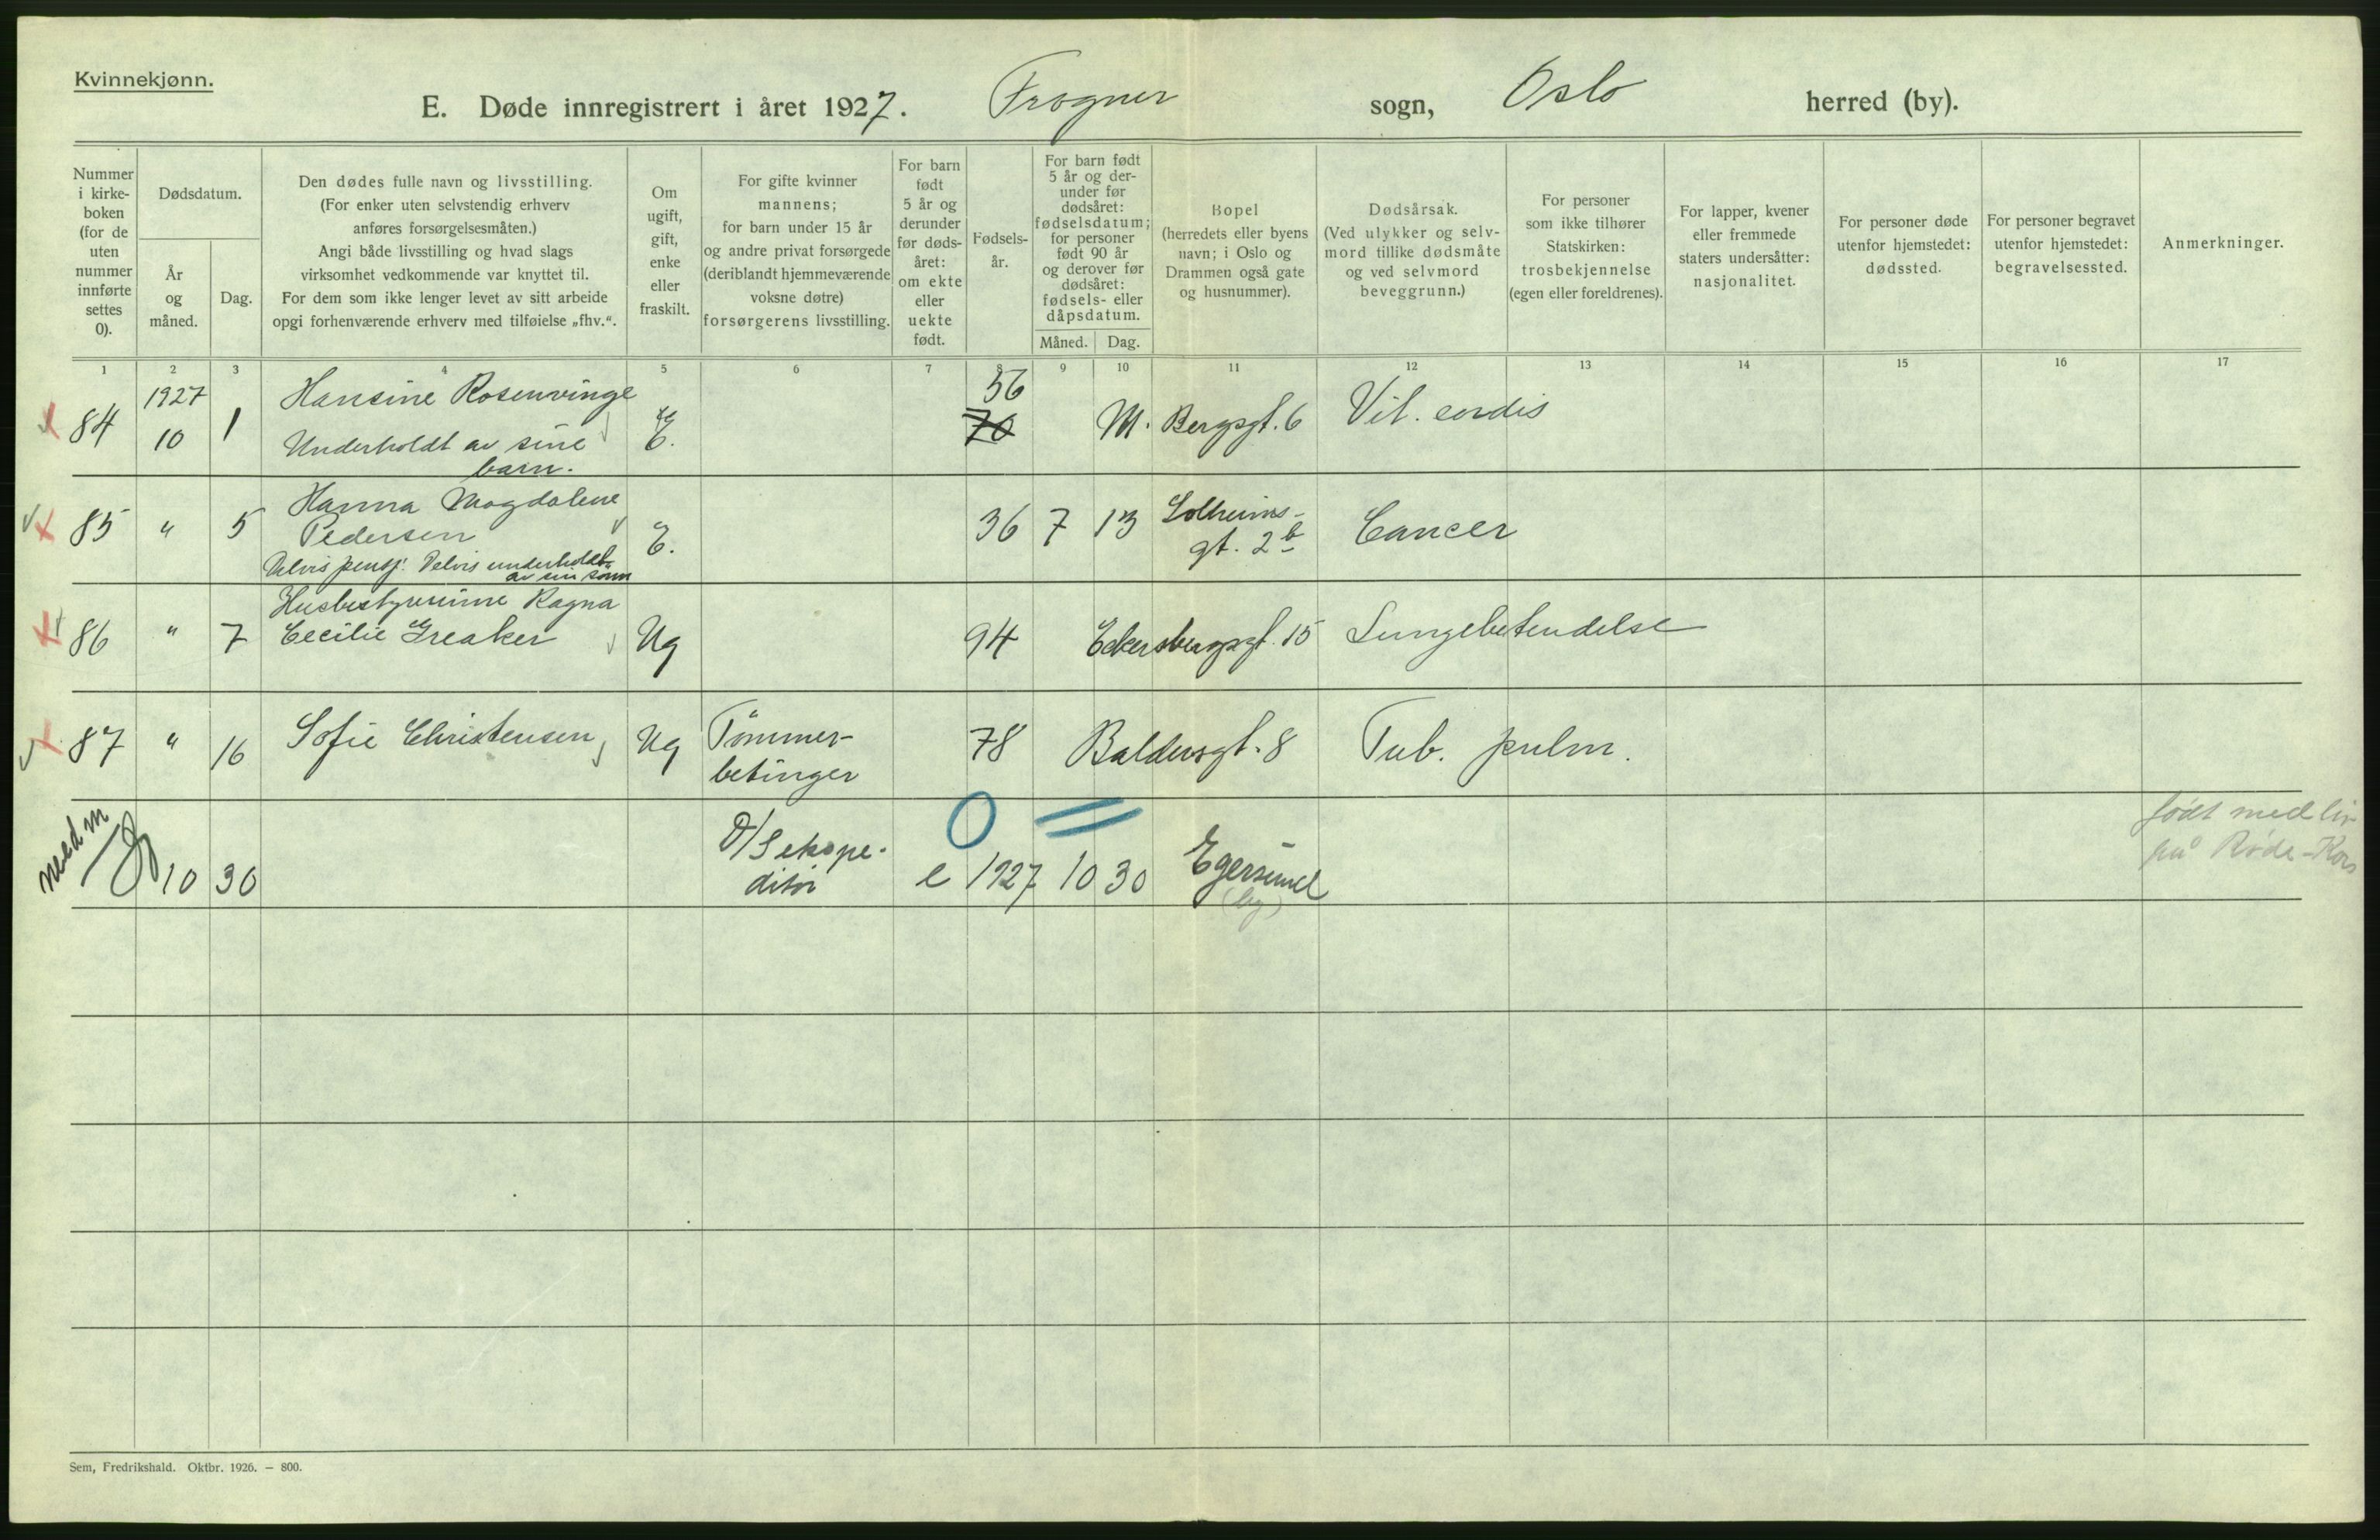 Kvinnekjønn.
E. Døde innregistrert i året 1927. Frogner sogn, Oslo herred (by).
Nummer
i kirke-
boken
(for de
uten
nummer
innførte
settes
0).
Dødsdatum.
År
og
måned.
Dag.
Den dødes fulle navn og livsstilling.
(For enker uten selvstendig erhverv
anføres forsørgelsesmåten.)
Angi både livsstilling og hvad slags
virksomhet vedkommende var knyttet til.
For dem som ikke lenger levet av sitt arbeide
opgi forhenværende erhverv med tilføielse „fhv.“.
Om
ugift,
gift,
enke
eller
fraskilt.
For gifte kvinner
mannens;
for barn under 15 år
og andre privat forsørgede
(deriblandt hjemmeværende
voksne døtre)
forsørgerens livsstilling.
For barn
født
5 år og
derunder
før døds-
året:
om ekte
eller
uekte
født.
Fødsels-
år.
For barn født
5 år og der-
under før
dødsåret:
fødselsdatum;
for personer
født 90 år
og derover før
dødsåret:
fødsels- eller
dåpsdatum.
Måned. Dag.
Bopel
(herredets eller byens
navn; i Oslo og
Drammen også gate
og husnummer).
Dødsårsak.
(Ved ulykker og selv-
mord tillike dødsmåte
og ved selvmord
beveggrunn.)
For personer
som ikke tilhører
Statskirken:
trosbekjennelse
(egen eller foreldrenes).
For lapper, kvener
eller fremmede
staters undersåtter:
nasjonalitet.
For personer døde
utenfor hjemstedet:
dødssted.
For personer begravet
utenfor hjemstedet:
begravelsessted.
Anmerkninger.
1 2 3 4 5 6 7 8 9 10 11 12 13 14 15 16 17
84 1927 10 1 Hansine Rosenvinge
Underholdt av sine
barn.
E. 56
70
M. Bergsgt. 6 Vit. cordis
85 " 5 Hanna Magdalene
Pedersen
Delvis pensj. Delvis underholdt
av sin sønn
E. 36 7 13 Solheims-
gt. 2b
Cancer
86 " 7 Husbestyrerinne Ragna
Cecilie Greaker
Ug 94 Eckersbergsgt. 15 Lungebetendelse
87 " 16 Sofie Christensen Ug Tømmer-
betinger
78 Baldersgt. 8 Tub. pulm.
med m
10 30 D/S ekspe-
ditør
e 1927 10 30 Egersund
(by)
født med liv
på Røde-Kors
Sem, Fredrikshald. Oktbr. 1926. — 800.